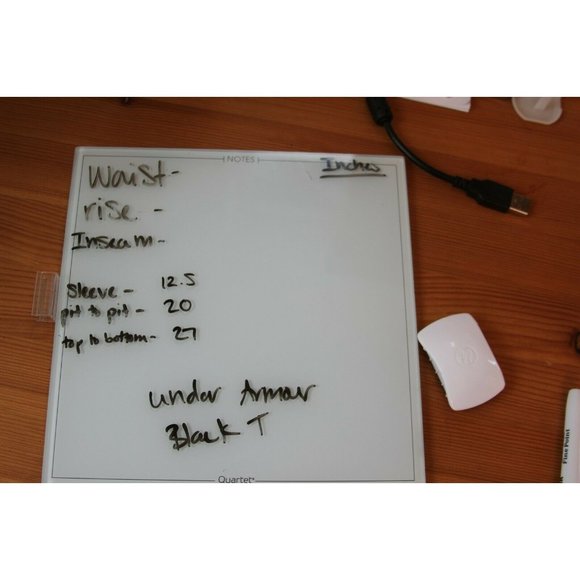 (NOTES)
Inches
Waist-
rise. -
Inseam-
Sleeve - 12.5
pit to pit - 20
top to bottom- 27
under Armour
Black T
Quartet
Fine Point